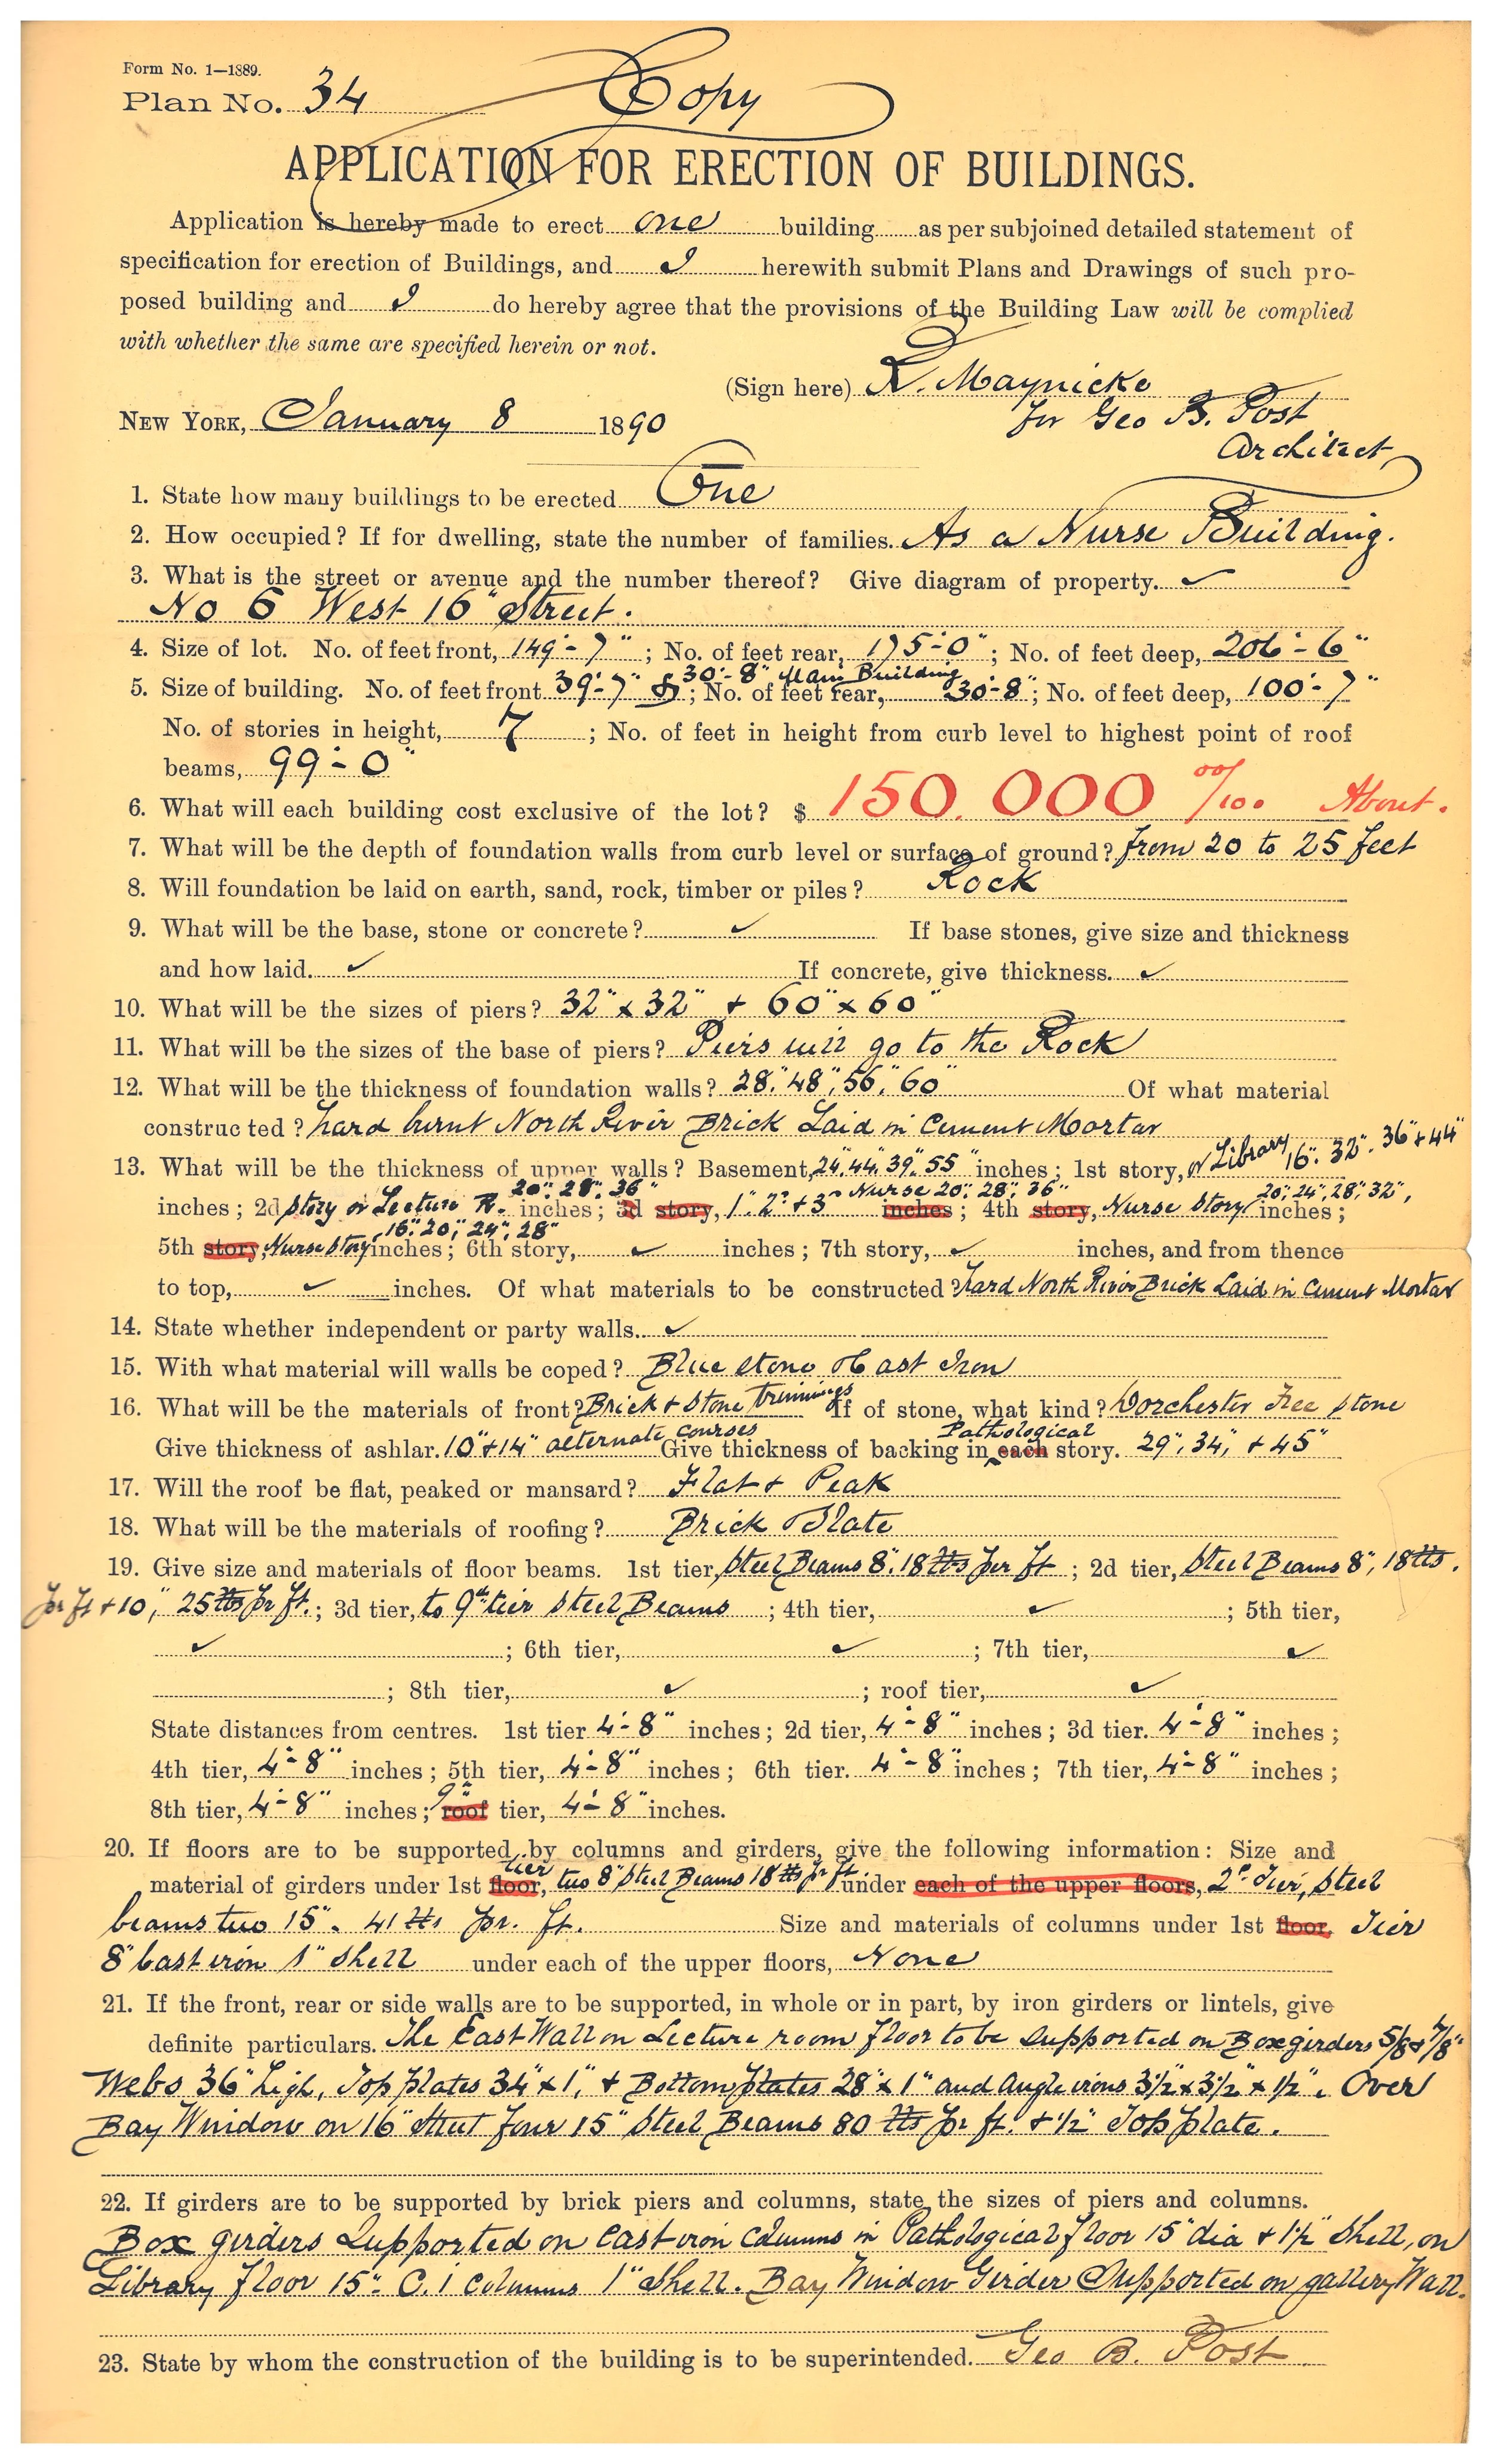 Form No. 1—1889.
Plan No. 34 Copy
APPLICATION FOR ERECTION OF BUILDINGS.
Application is hereby made to erect one building as per subjoined detailed statement of
specification for erection of Buildings, and I herewith submit Plans and Drawings of such pro-
posed building and I do hereby agree that the provisions of the Building Law will be complied
with whether the same are specified herein or not.
(Sign here) R. Maynicke
for Geo B. Post
NEW YORK, January 8 1890
Architect
1. State how many buildings to be erected One
2. How occupied? If for dwelling, state the number of families. As a Nurse Building.
3. What is the street or avenue and the number thereof? Give diagram of property. ✓
No 6 West 16" Street.
4. Size of lot. No. of feet front, 149'-7"; No. of feet rear, 175'-0"; No. of feet deep, 206'-6"
30'-8" Main Building
5. Size of building. No. of feet front 39'-7" &; No. of feet rear, 30'-8"; No. of feet deep, 100'-7"
No. of stories in height, 7; No. of feet in height from curb level to highest point of roof
beams, 99'-0"
6. What will each building cost exclusive of the lot? $ 150.000 00/100 About.
7. What will be the depth of foundation walls from curb level or surface of ground? from 20 to 25 feet
8. Will foundation be laid on earth, sand, rock, timber or piles? Rock
9. What will be the base, stone or concrete? ✓ If base stones, give size and thickness
and how laid. ✓ If concrete, give thickness. ✓
10. What will be the sizes of piers? 32" x 32" + 60" x 60"
11. What will be the sizes of the base of piers? Piers will go to the Rock
12. What will be the thickness of foundation walls? 28", 48", 56", 60" Of what material
constructed? hard burnt North River Brick Laid in Cement Mortar
13. What will be the thickness of upper walls? Basement, 24", 44", 39", 55" inches; 1st story, or Library 16". 32". 36" + 44"
20". 28". 36" Nurse 20". 28". 36" 20", 24", 28" 32",
inches; 2d story or Lecture R. inches; 3d story, 1". 2" + 3" inches; 4th story, Nurse Story inches;
16". 20", 24", 28"
5th story, Nurse Story inches; 6th story, ✓ inches; 7th story, ✓ inches, and from thence
to top, ✓ inches. Of what materials to be constructed? Hard North River Brick Laid in Cement Mortar
14. State whether independent or party walls. ✓
15. With what material will walls be coped? Blue stone & Cast Iron
16. What will be the materials of front? Brick + Stone trimmings If of stone, what kind? Dorchester Free stone
Pathological
Give thickness of ashlar. 10" + 14" alternate courses Give thickness of backing in each story. 29", 34", + 45"
17. Will the roof be flat, peaked or mansard? Flat + Peak
18. What will be the materials of roofing? Brick & Slate
19. Give size and materials of floor beams. 1st tier, Steel Beams 8". 18 lbs per ft; 2d tier, Steel Beams 8", 18 lbs.
pr ft + 10", 25 lbs pr ft.; 3d tier, to 9th tier Steel Beams; 4th tier, ✓; 5th tier,
✓; 6th tier, ✓; 7th tier, ✓
; 8th tier, ✓; roof tier, ✓
State distances from centres. 1st tier 4'-8" inches; 2d tier, 4'-8" inches; 3d tier. 4'-8" inches;
4th tier, 4'-8" inches; 5th tier, 4'-8" inches; 6th tier. 4'-8" inches; 7th tier, 4'-8" inches;
8th tier, 4'-8" inches; 9" roof tier, 4'-8" inches.
20. If floors are to be supported by columns and girders, give the following information: Size and
tier
material of girders under 1st floor, two 8" Steel Beams 18 lbs pr ft. under each of the upper floors, 2d Tier, Steel
beams two 15". 41 lbs pr. ft. Size and materials of columns under 1st floor, Tier
8" Cast iron 1" Shell under each of the upper floors, None
21. If the front, rear or side walls are to be supported, in whole or in part, by iron girders or lintels, give
definite particulars. The East Wall on Lecture room floor to be supported on Box girders 5/8 & 7/8"
Webs 36" high, Top plates 34" x 1", + Bottom plates 28" x 1" and Angle irons 3½" x 3½" x ½". Over
Bay Window on 16" Street four 15" Steel Beams 80 lbs pr ft. + ½" Top plate.
22. If girders are to be supported by brick piers and columns, state the sizes of piers and columns.
Box girders Supported on Cast iron Columns in Pathological floor 15" dia + 1½" Shell, on
Library floor 15". C. i Columns 1" Shell. Bay Window Girder Supported on gallery Wall.
23. State by whom the construction of the building is to be superintended. Geo B. Post